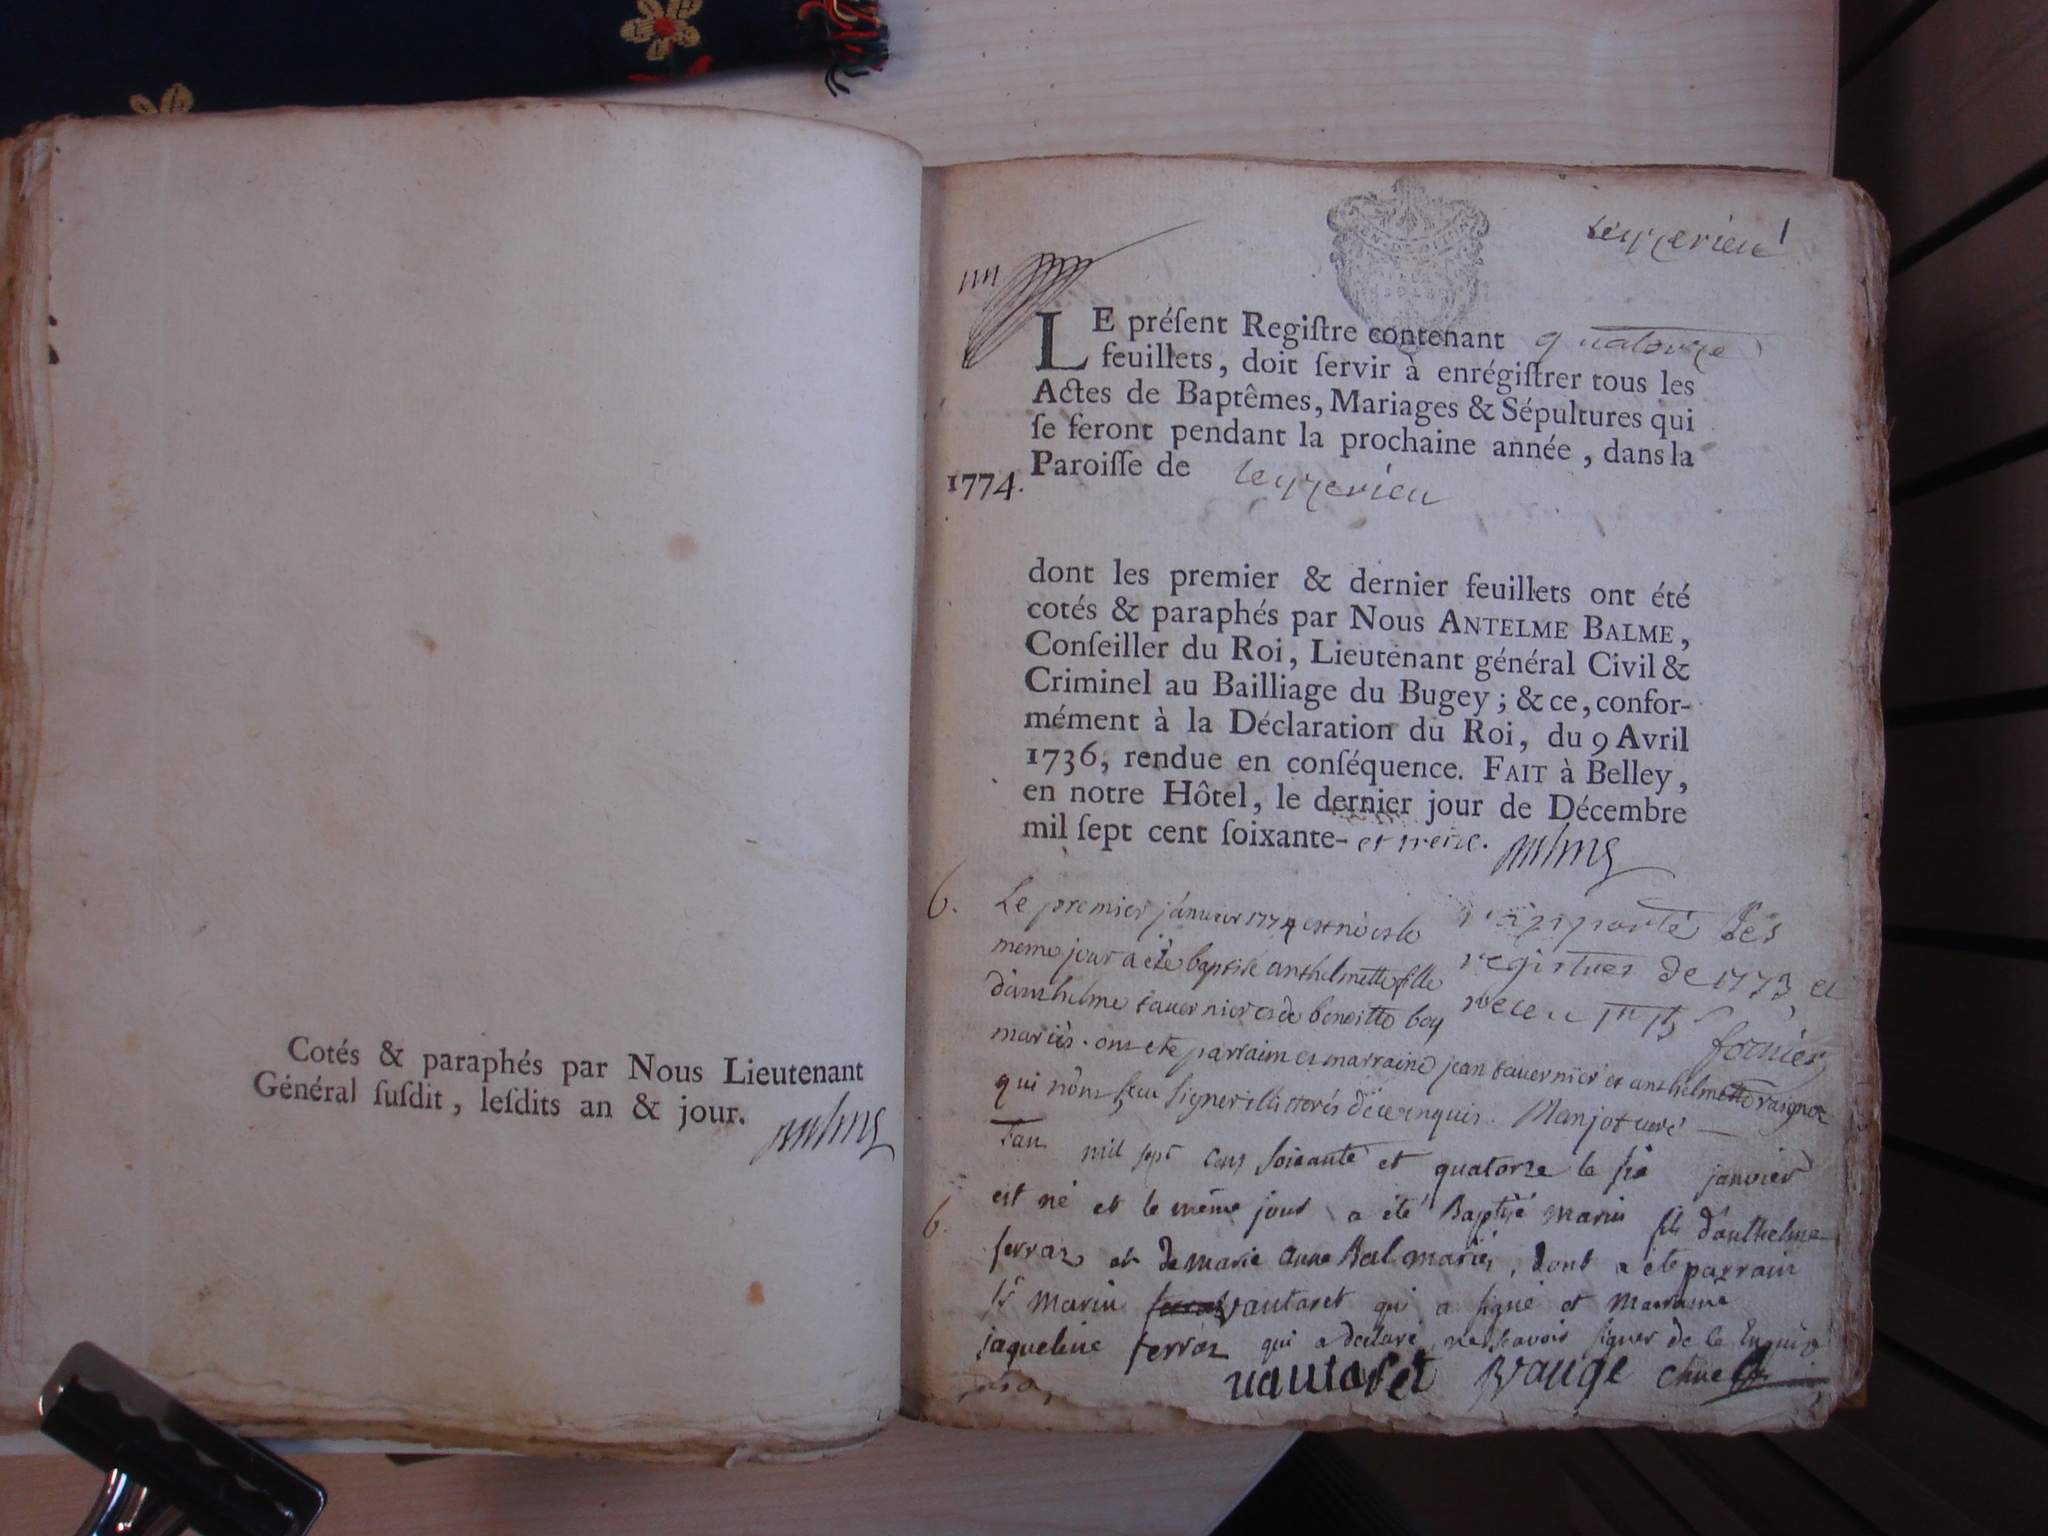 Cotés & paraphés par Nous Lieutenant
Général ſuſdit, leſdits an & jour.
leyzerieu 1
LE préſent Regiſtre contenant quatorze
feuillets, doit ſervir à enrégiſtrer tous les
Actes de Baptêmes, Mariages & Sépultures qui
ſe feront pendant la prochaine année, dans la
Paroiſſe de leyzerieu
1774.
dont les premier & dernier feuillets ont été
cotés & paraphés par Nous ANTELME BALME,
Conſeiller du Roi, Lieutenant général Civil &
Criminel au Bailliage du Bugey ; & ce, confor-
mément à la Déclaration du Roi, du 9 Avril
1736, rendue en conſéquence. FAIT à Belley,
en notre Hôtel, le dernier jour de Décembre
mil ſept cent ſoixante- et treize.
raporté les
registres de 1773 et
receu
fornier
6. Le premier janvier 1774 est né et le
meme jour a été baptisé anthelmette fille
d'anthelme tavernier et de benoitte boy
mariés. ont été parrain et marraine jean tavernier et anthelmette
qui n'ont sceu signer illitterés de ce enquis. Manjot curé
L'an mil sept cens soixante et quatorze le six janvier
6. est né et le même jour a été Baptisé marin fils d'anthelme
ferraz et de marie anne Bal mariés, dont a été parrain
sr marin vautaret qui a signé et marraine
jaqueline ferraz qui a declaré ne scavoir signer de ce enquise
vautaret